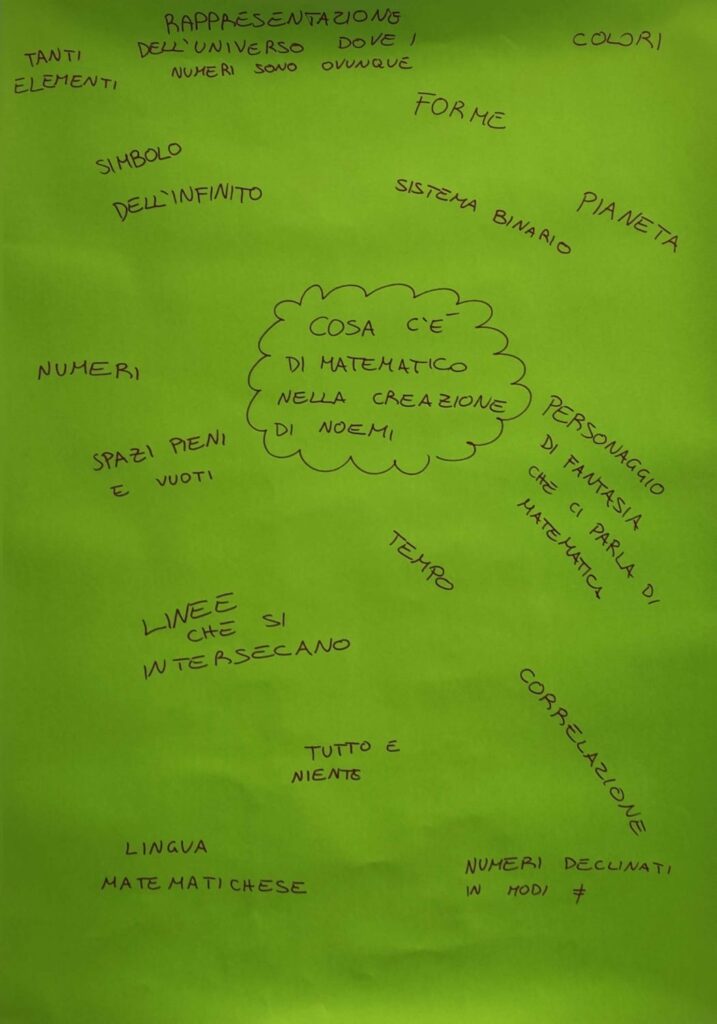 RAPPRESENTAZIONE
DELL'UNIVERSO DOVE I
NUMERI SONO OVUNQUE
TANTI
ELEMENTI
COLORI
FORME
SIMBOLO
DELL'INFINITO
SISTEMA BINARIO
PIANETA
COSA C'É
DI MATEMATICO
NELLA CREAZIONE
DI NOEMI
NUMERI
SPAZI PIENI
E VUOTI
PERSONAGGIO
DI FANTASIA
CHE CI PARLA DI
MATEMATICA
TEMPO
LINEE
CHE SI
INTERSECANO
CORRELAZIONE
TUTTO E
NIENTE
LINGUA
MATEMATICHESE
NUMERI DECLINATI
IN MODI ≠